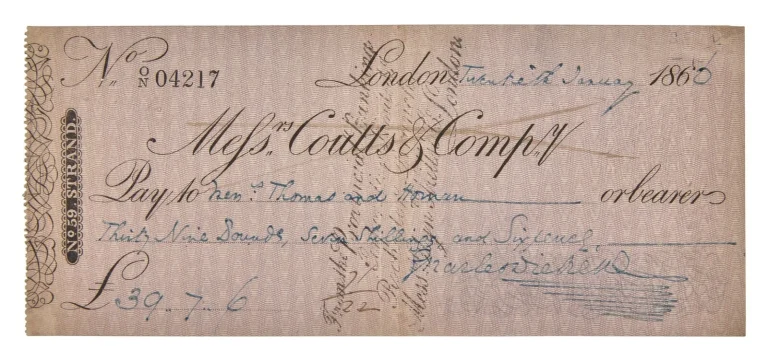 No. O/N 04217 London, Twentieth January 1860
Messrs. Coutts & Compy.
Pay to Messrs. Thomas and Homan or bearer
Thirty Nine Pounds, Seven Shillings and Sixpence.
Charles Dickens
£ 39 . 7 . 6
No. 59. STRAND.
From the
London